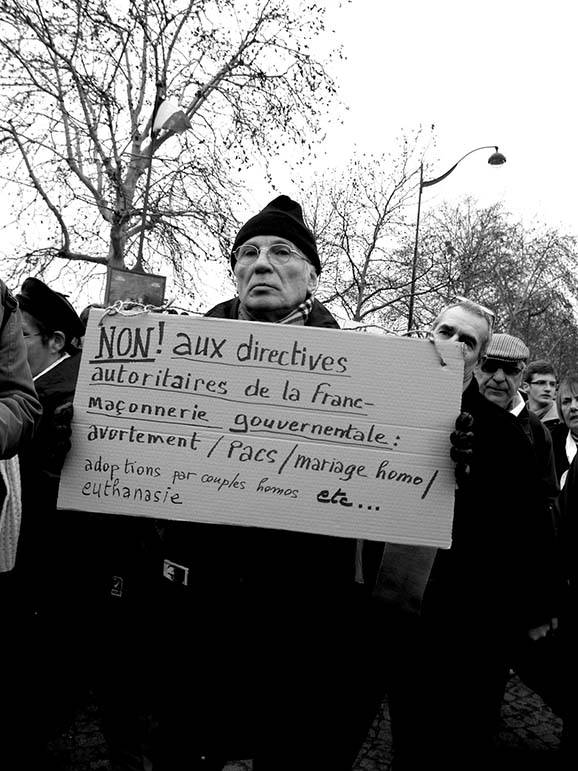 NON! aux directives
autoritaires de la franc-
maçonnerie gouvernementale:
avortement / Pacs / mariage homo /
adoptions par couples homos etc...
euthanasie